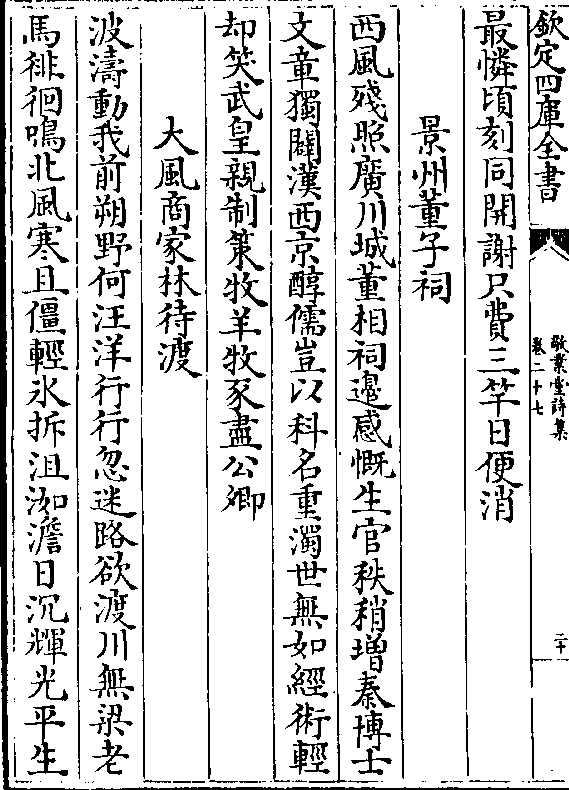 欽定四庫全書
敬業堂詩集
卷二十七
二十
最憐頃刻同開謝只費三竿日便消
景州董子祠
西風殘照廣川城董相祠邊感慨生官秩稍增秦博士
文章獨闢漢西京醇儒豈以科名重濁世無如經術輕
却笑武皇親制策牧羊牧豕盡公卿
大風商家林待渡
波濤動我前朔野何汪洋行行忽迷路欲渡川無梁老
馬徘徊鳴北風寒且僵輕氷拆沮洳澹日沉輝光平生